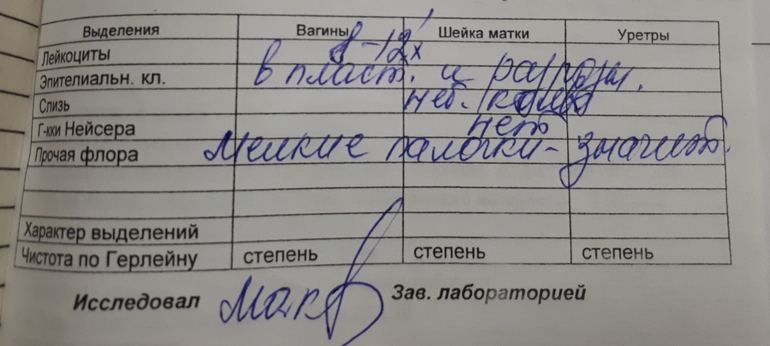 Выделения Вагины Шейка матки Уретры
Лейкоциты 8-12х
Эпителиальн. кл. в пласт. и разрозн.
Слизь неб. кол-во
Г-кки Нейсера нет
Прочая флора Мелкие палочки- значит.
Характер выделений
Чистота по Герлейну степень степень степень
Исследовал Зав. лабораторией